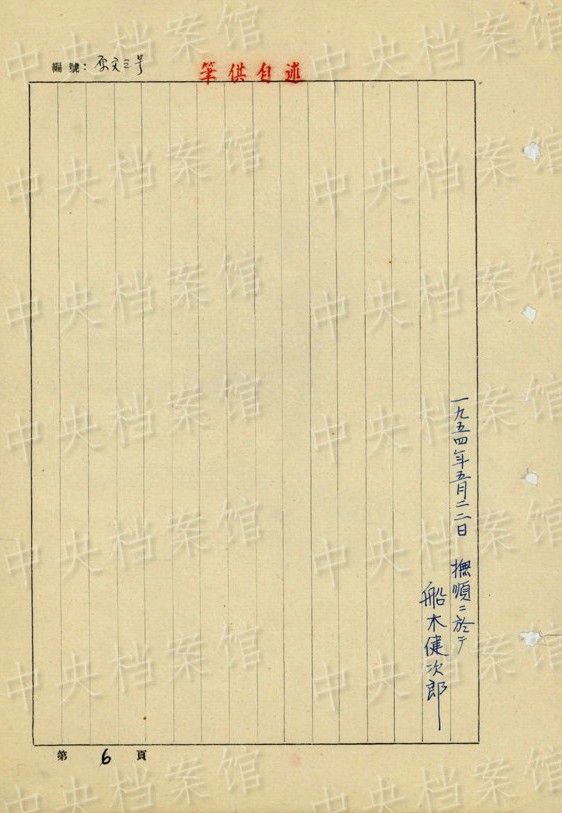 編號：原文三号
筆供自述
一九五四年五月二二日　撫順ニ於テ
船木健次郎
第 6 頁
中央档案馆